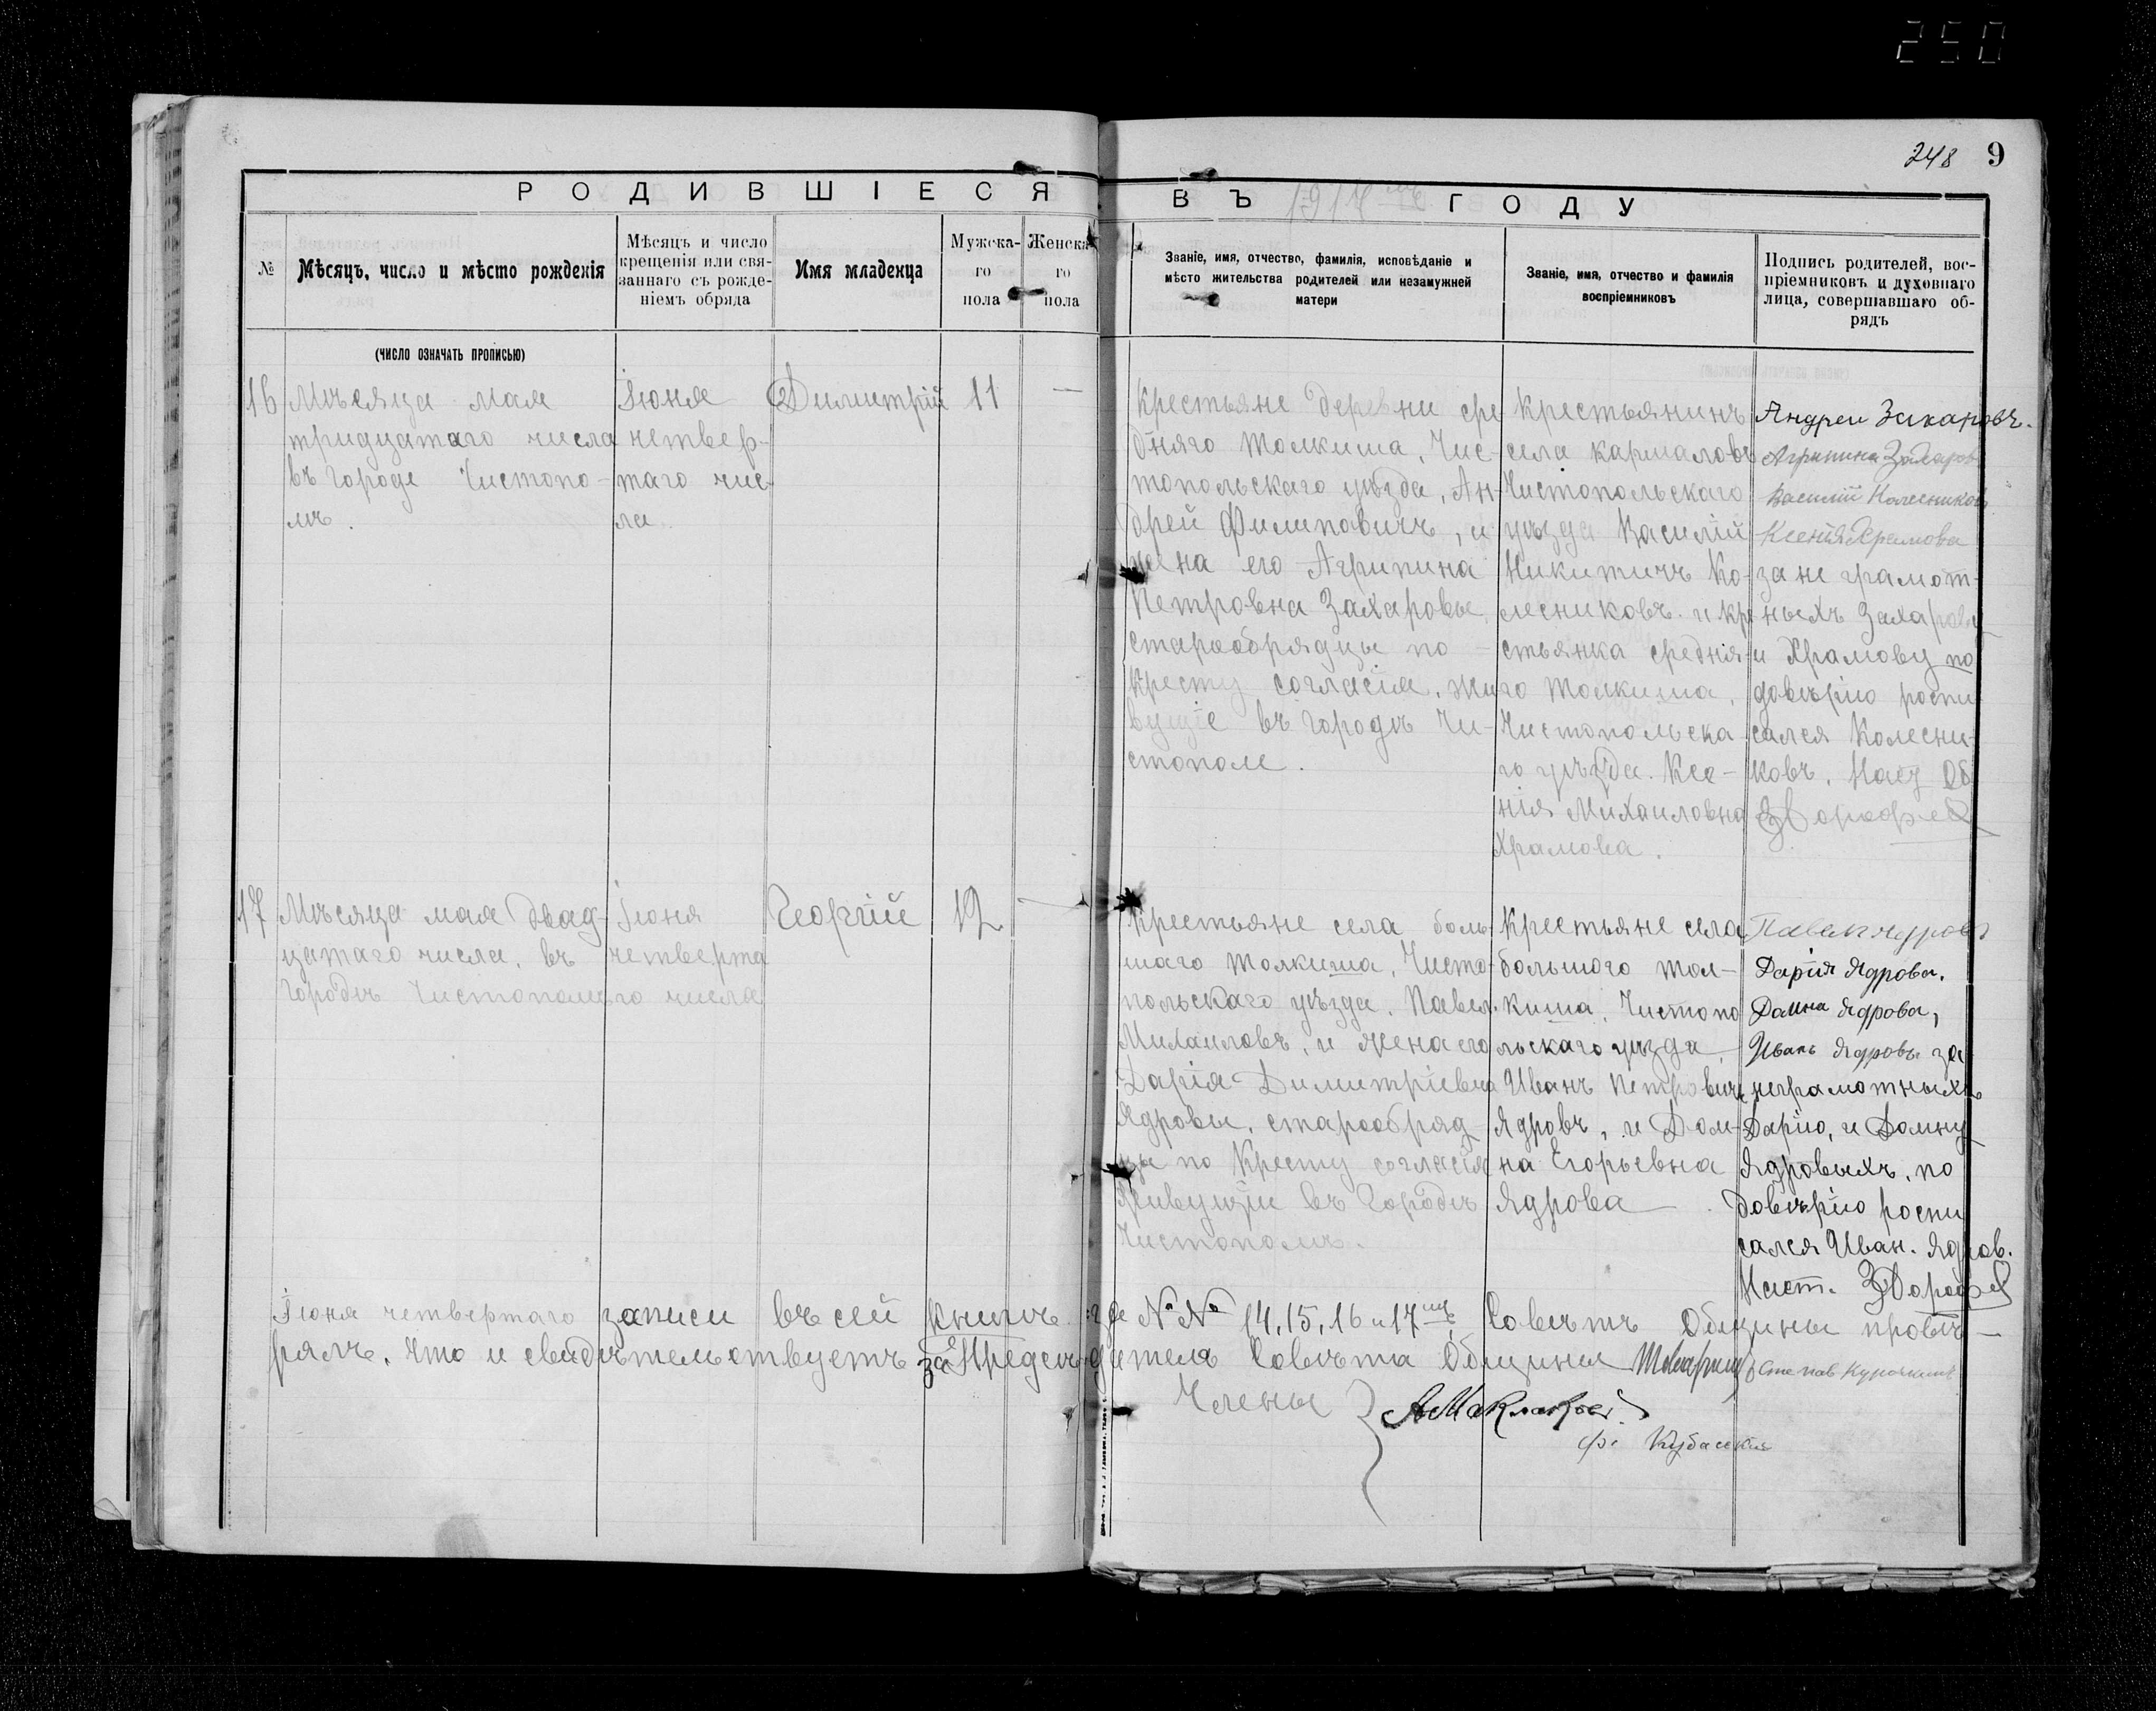 250
248 9
РОДИВШІЕСЯ ВЪ 1914 мъ ГОДУ
№
Мѣсяцъ, число и мѣсто рожденія
Мѣсяцъ и число
крещенія или свя-
заннаго съ рожде-
ніемъ обряда
Имя младенца
Мужска-
го
пола
Женска-
го
пола
Званіе, имя, отчество, фамилія, исповѣданіе и
мѣсто жительства родителей или незамужней
матери
Званіе, имя, отчество и фамилія
воспріемниковъ
Подпись родителей, вос-
пріемниковъ и духовнаго
лица, совершавшаго об-
рядъ
(ЧИСЛО ОЗНАЧАТЬ ПРОПИСЬЮ)
16
Мѣсяца мая
тридцатаго числа
въ городе Чистопо-
лѣ.
Іюня
четвер-
таго чис-
ла
Димитрій
11
—
Крестьяне деревни сре
дняго толкиша, Чис-
топольскаго уѣзда, Ан-
дрей Филиповичъ, и
жена его Агрипина
Петровна Захаровы,
старообрядцы по -
Кресту согласія, жи
вущіе въ городѣ Чи-
стополе.
Крестьянинъ
села кармалово
Чистопольскаго
уѣзда Василій
Никитичъ Ко-
лесниковъ. и кре
стьянка средня-
го толкиша,
Чистопольска
го уѣзда. Ксе-
нія Михаиловна
Храмова.
Андреи Захаровъ.
Агрипина Захаров
Василий Колесников
Ксенія Храмова
за не грамот-
ныхъ Захаровы
и Храмову по
довѣрію роспи
сался Колесни-
ковъ. Наст Об
17
Мѣсяца мая двад-
цатаго числа, въ
городѣ Чистополѣ
Іюня
четверта
го числа
Георгій
12
—
Крестьяне села боль-
шаго толкиша, Чисто-
польскаго уѣзда, Павел.
Михаиловъ, и жена его
Дарія Димитріевна
Ядровы, старообряд
цы по Кресту согласія
Живущіи въ городѣ
Чистополѣ.
Крестьяне села
большого тол-
киша, Чистопо
льскаго уѣзда,
Иванъ Петровичъ
Ядровъ, и Дом-
на Егорьевна
Ядрова
Павел Ядровъ
Дарія Ядрова.
Домна Ядрова,
Иванъ Ядровъ за
неграмотныхъ
Дарію, и Домну
Ядровыхъ, по
довѣрію роспи
сался Иван. Ядров.
Наст. З Дорофеев
Іюня четвертаго записи въ сей книгѣ где №№ 14, 15, 16 и 17 мъ Совѣтъ Общины провѣ-
рялъ, что и свидѣтельствуетъ за Председателя Совѣта Общины Степав Курочкинъ
Члены
А Маклаковъ